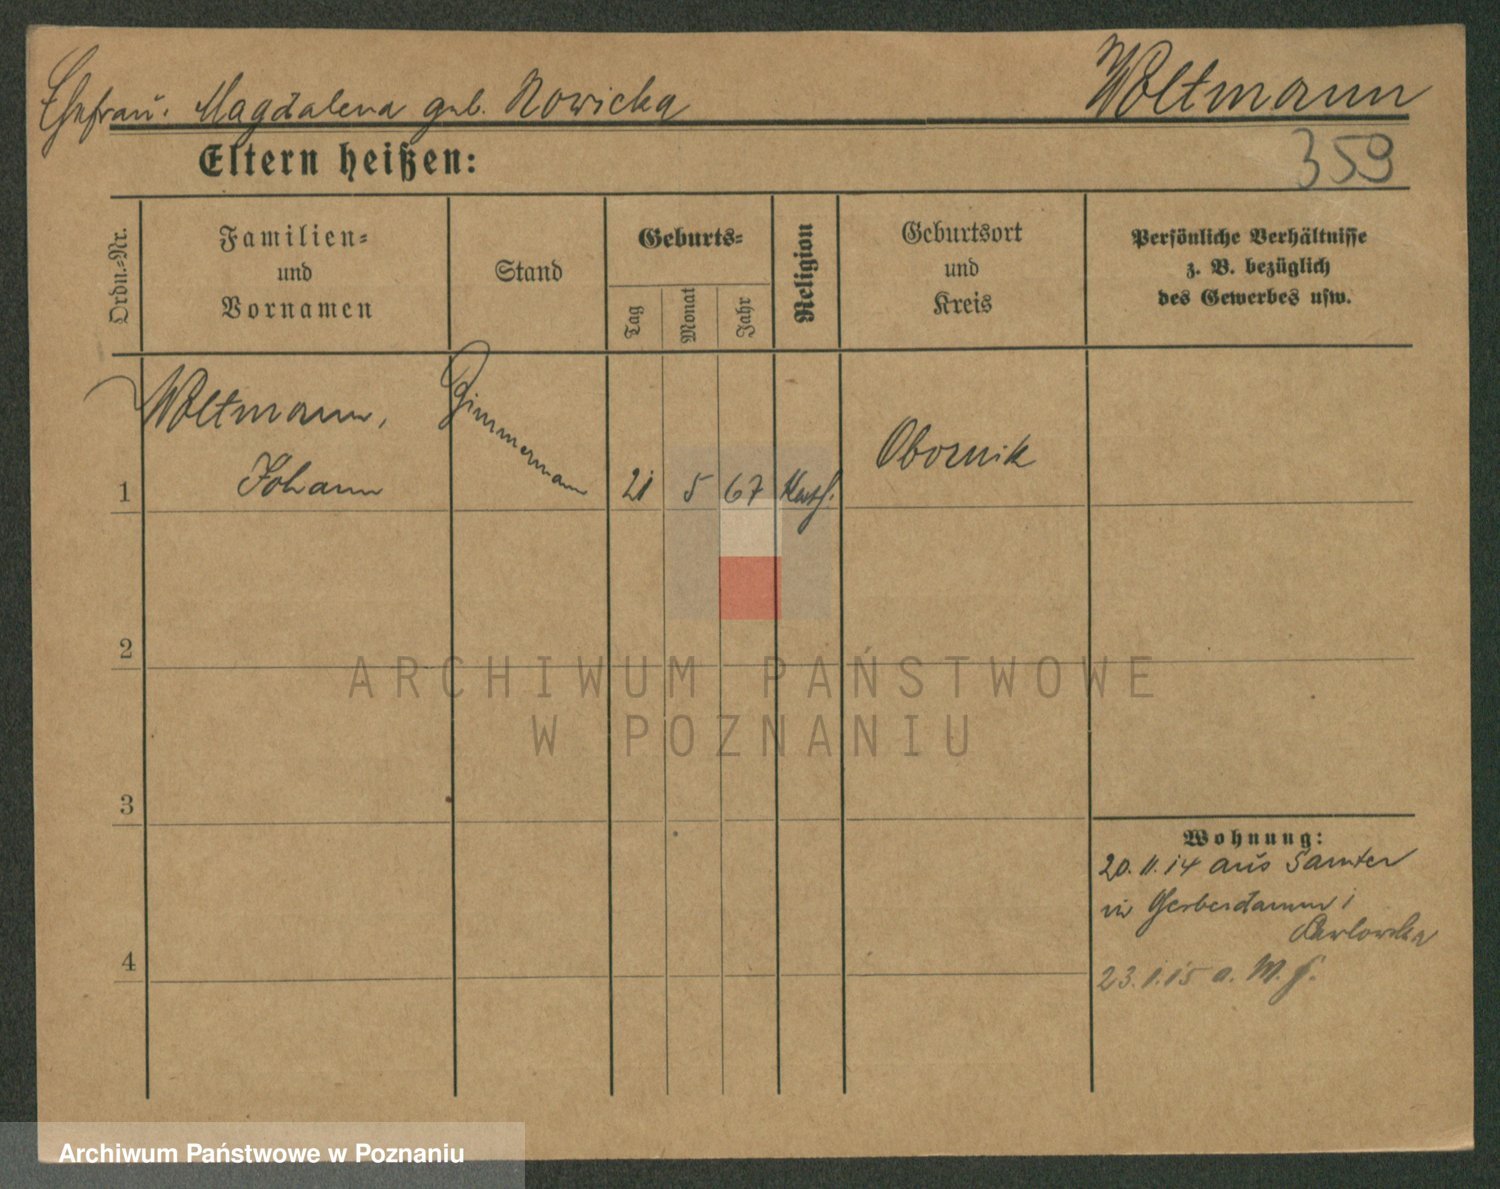 Ehefrau. Magdalena geb. Nowicka
Woltmann
Eltern heißen:
359
Ordn.-Nr.
Familien-
und
Vornamen
Stand
Geburts-
Tag
Monat
Jahr
Religion
Geburtsort
und
Kreis
Persönliche Verhältnisse
z. B. bezüglich
des Gewerbes usw.
1
Woltmann,
Johann
Zimmermann
21
5
67
Kath.
Obornik
2
ARCHIWUM PAŃSTWOWE
W POZNANIU
3
Wohnung:
20.11.14 aus Samter
in Gerberdamm 1
Pawlowska
4
23.1.15 a.
Archiwum Państwowe w Poznaniu